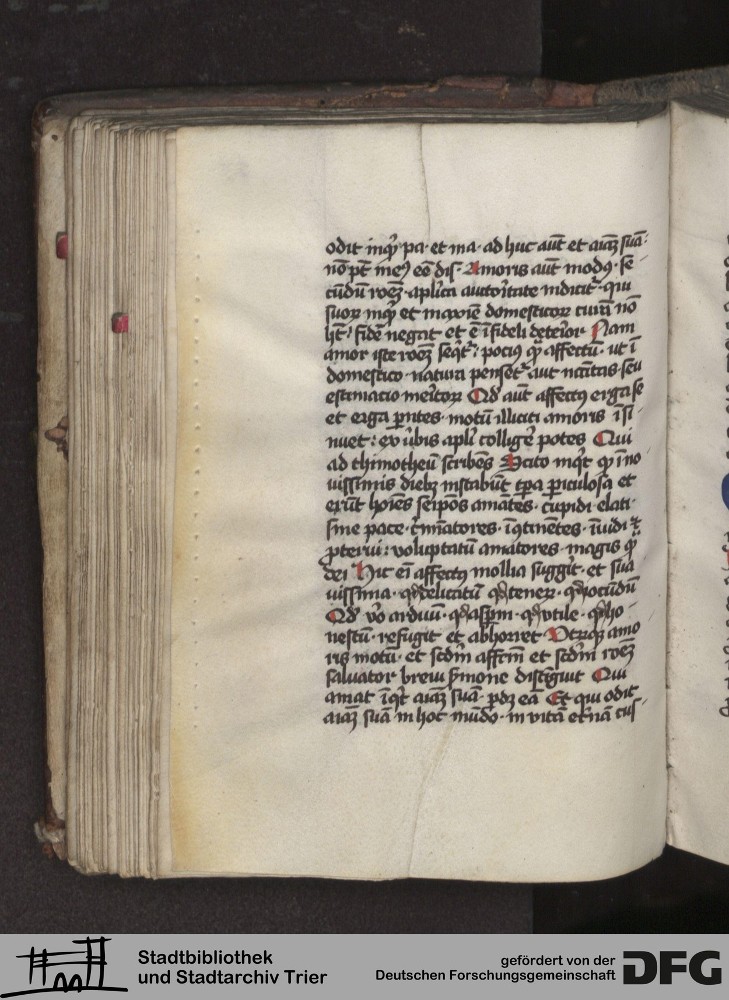 odit inqͥ pa· et ma· ad huc aut̄ et aīaꝫ suā:
nō pt̄ meꝰ eē dis· Amoris aut̄ modꝰ· se
cūdū roēꝫ· aplīca auctoritate indicit᷑· qui
suoꝝ inqͥ et maxīe domesticoꝝ curā nō
ht̄· fidē negat et ē īfideli deterior Nam
amor iste roēꝫ seqͥt᷑· pociꝰ qͣ̄ affectū· ut ī
domestico· natura penset᷑ aut nc̄itas· seu
estimacio meritoꝝ Qd̓ aut̄ affectꝰ erga se
et erga pn̄tes· motū illiciti amoris īsi
nuet: ex v̓bis apl̄i collige̓ potes Qui
ad thimotheū scribēs Scito inqͥt ꝙ ī no
uissimis diebꝫ instabūt tp̄a ꝑiculosa et
erūt hoīes seip̄os amātes· cupidi· elati·
sine pace· cͥmīatores· īꝯtinētes· īuidi ⁊
ꝓterui: voluptatū amatores· magis qͣ̄
dei Hic em̄ affectꝰ mollia suggīt· et sua
uissima· qd̓ delicatū qd̓ teneꝝ· qd̓ iocūdū
Qd̓ v̓o arduū· qd̓ aspꝝ· qd̓ vtile· qd̓ ho
nestū· refugit et abhorret· Vtrūqꝫ amo
ris motū· et scd̄m affcm̄ et scd̄m roēꝫ
saluator breui sͤmone distīguit Qui
amat īqͥt aīaꝫ suā· ꝑdꝫ eā Et qui odit
aīaꝫ suā in hoc mūdo· in vitā et̓nā cus
Stadtbibliothek
und Stadtarchiv Trier
gefördert von der
Deutschen Forschungsgemeinschaft
DFG